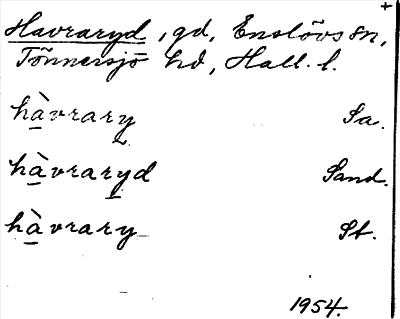 +
Havraryd, gd, Enslövs sn,
Tönnersjö hd, Hall. l.
hàvrary Sa.
hàvraryd Sand.
hàvrary St.
1954.